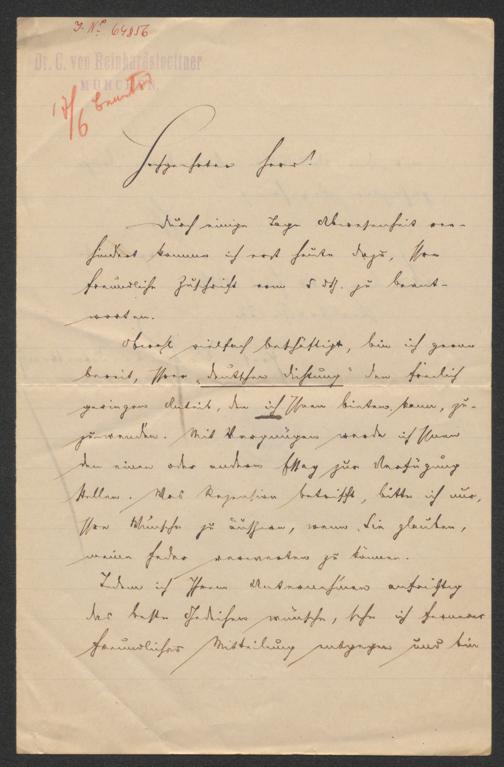 J. Nº 64856
Dr. C. von Reinhardstoettner
MÜNCHEN.
17/6 beantw
Hochgeehrter Herr!
Durch einige Tage Abwesenheit ver-
hindert komme ich erst heute dazu, Ihre
freundliche Zuschrift vom 5 ds. zu beant-
worten.
Obwohl vielfach beschäftigt, bin ich gerne
bereit, Ihrer „deutschen Dichtung" den freilich
geringen Anteil, den ich Ihnen bieten kann, zu-
zuwenden. Mit Vergnügen werde ich Ihnen
den einen oder andern Essay zur Verfügung
stellen. Was Rezension betrifft, bitte ich nur,
Ihre Wünsche zu äussern, wenn Sie glauben,
meine Feder verwerten zu können.
Indem ich Ihrem Unternehmen aufrichtig
das beste Gedeihen wünsche, sehe ich fernerer
freundlicher Mitteilung entgegen und bin